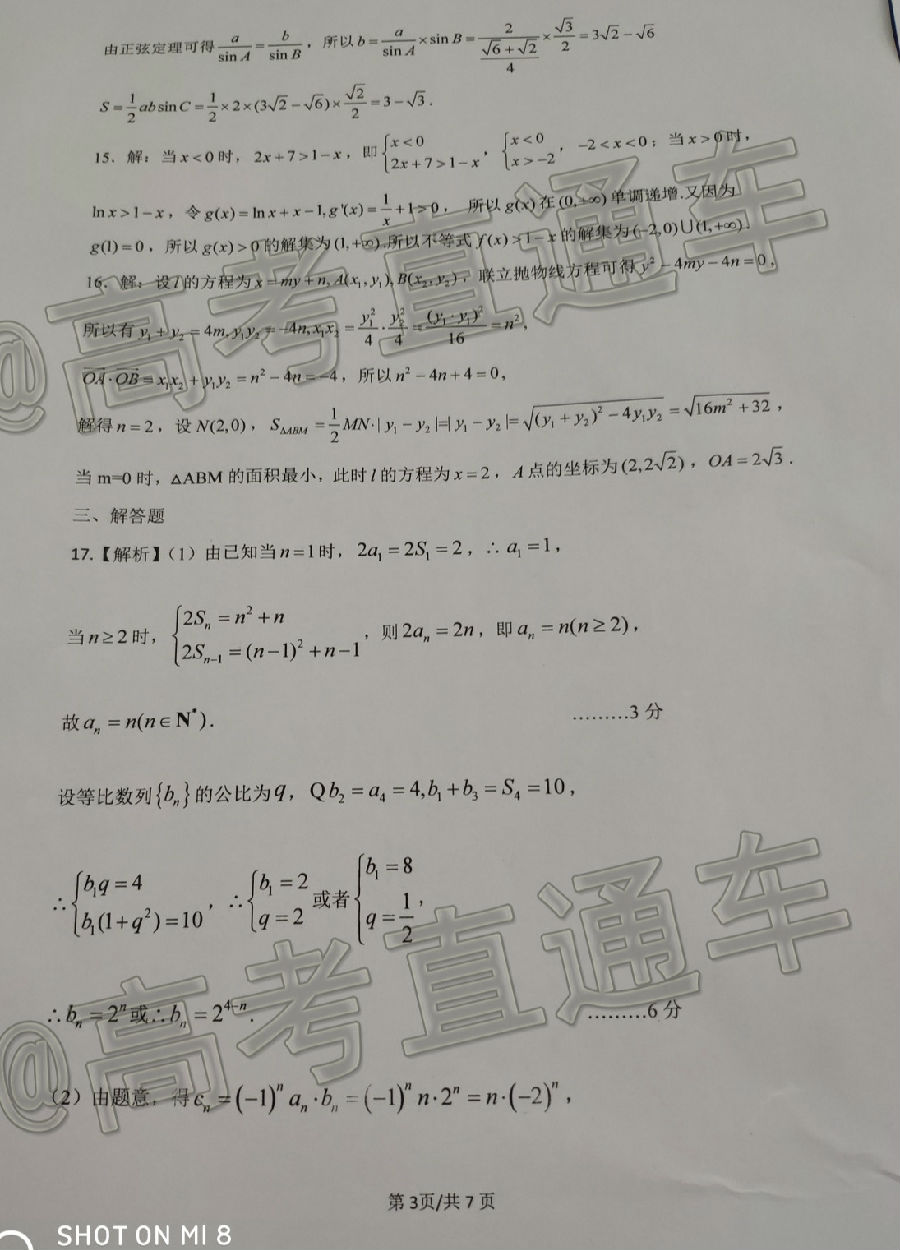 由正弦定理可得 a/sin A = b/sin B，所以 b = a/sin A × sin B = 2/((√6+√2)/4) × √3/2 = 3√2 − √6
S = 1/2 ab sin C = 1/2 × 2 × (3√2 − √6) × √2/2 = 3 − √3．
15、解：当 x < 0 时，2x + 7 > 1 − x，即 {x < 0, 2x + 7 > 1 − x，{x < 0, x > −2，−2 < x < 0；当 x > 0 时，
ln x > 1 − x，令 g(x) = ln x + x − 1, g'(x) = 1/x + 1 > 0， 所以 g(x) 在 (0,+∞) 单调递增.又因为
g(1) = 0，所以 g(x) > 0 的解集为 (1,+∞).所以不等式 f(x) > 1 − x 的解集为 (−2,0)∪(1,+∞).
16、解：设 l 的方程为 x = my + n, A(x₁, y₁), B(x₂, y₂)，联立抛物线方程可得 y² − 4my − 4n = 0，
所以有 y₁ + y₂ = 4m, y₁y₂ = −4n, x₁x₂ = y₁²/4 · y₂²/4 = (y₁·y₂)²/16 = n²,
OA·OB = x₁x₂ + y₁y₂ = n² − 4n = −4，所以 n² − 4n + 4 = 0，
解得 n = 2，设 N(2,0)，S△ABM = 1/2 MN·| y₁ − y₂ |=| y₁ − y₂ |= √((y₁ + y₂)² − 4y₁y₂) = √(16m² + 32)，
当 m=0 时，△ABM 的面积最小，此时 l 的方程为 x = 2，A 点的坐标为 (2, 2√2)，OA = 2√3．
三、解答题
17.【解析】（1）由已知当 n = 1 时，2a₁ = 2S₁ = 2，∴ a₁ = 1，
当 n ≥ 2 时，{2Sₙ = n² + n, 2Sₙ₋₁ = (n−1)² + n − 1，则 2aₙ = 2n，即 aₙ = n(n ≥ 2)，
故 aₙ = n(n ∈ N*)． ………3 分
设等比数列{bₙ}的公比为 q，Q b₂ = a₄ = 4, b₁ + b₃ = S₄ = 10，
∴ {b₁q = 4, b₁(1+q²) = 10，∴ {b₁ = 2, q = 2 或者 {b₁ = 8, q = 1/2，
∴ bₙ = 2ⁿ 或 ∴ bₙ = 2⁴⁻ⁿ． ………6 分
（2）由题意，得 cₙ = (−1)ⁿ aₙ · bₙ = (−1)ⁿ n·2ⁿ = n·(−2)ⁿ，
第 3页/共 7 页
@高考直通车
@高考直通车
SHOT ON MI 8